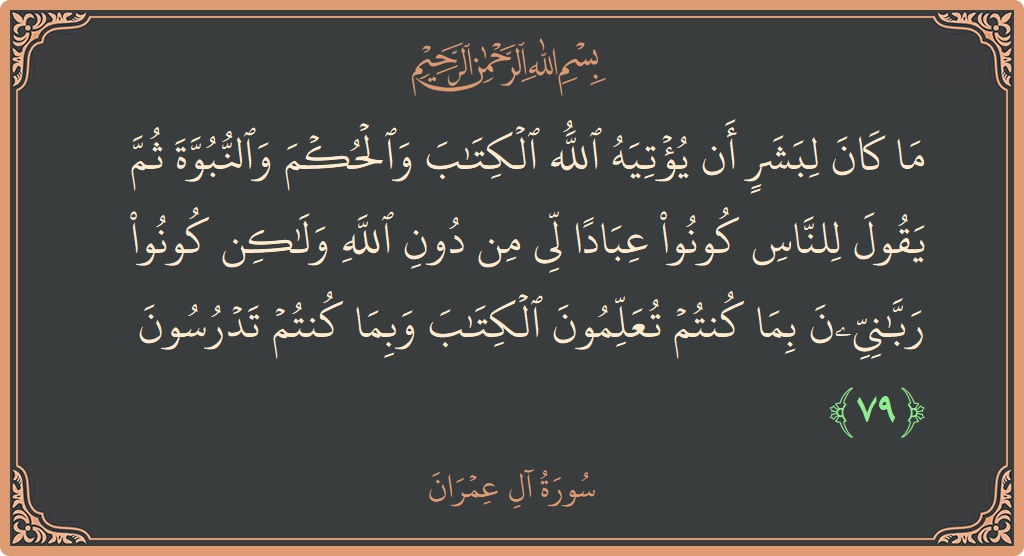 بِسْمِ اللَّهِ الرَّحْمَٰنِ الرَّحِيمِ
مَا كَانَ لِبَشَرٍ أَن يُؤْتِيَهُ ٱللَّهُ ٱلْكِتَٰبَ وَٱلْحُكْمَ وَٱلنُّبُوَّةَ ثُمَّ
يَقُولَ لِلنَّاسِ كُونُوا۟ عِبَادًا لِّى مِن دُونِ ٱللَّهِ وَلَٰكِن كُونُوا۟
رَبَّٰنِيِّۦنَ بِمَا كُنتُمْ تُعَلِّمُونَ ٱلْكِتَٰبَ وَبِمَا كُنتُمْ تَدْرُسُونَ
﴿٧٩﴾
سُورَةُ آلِ عِمْرَانَ